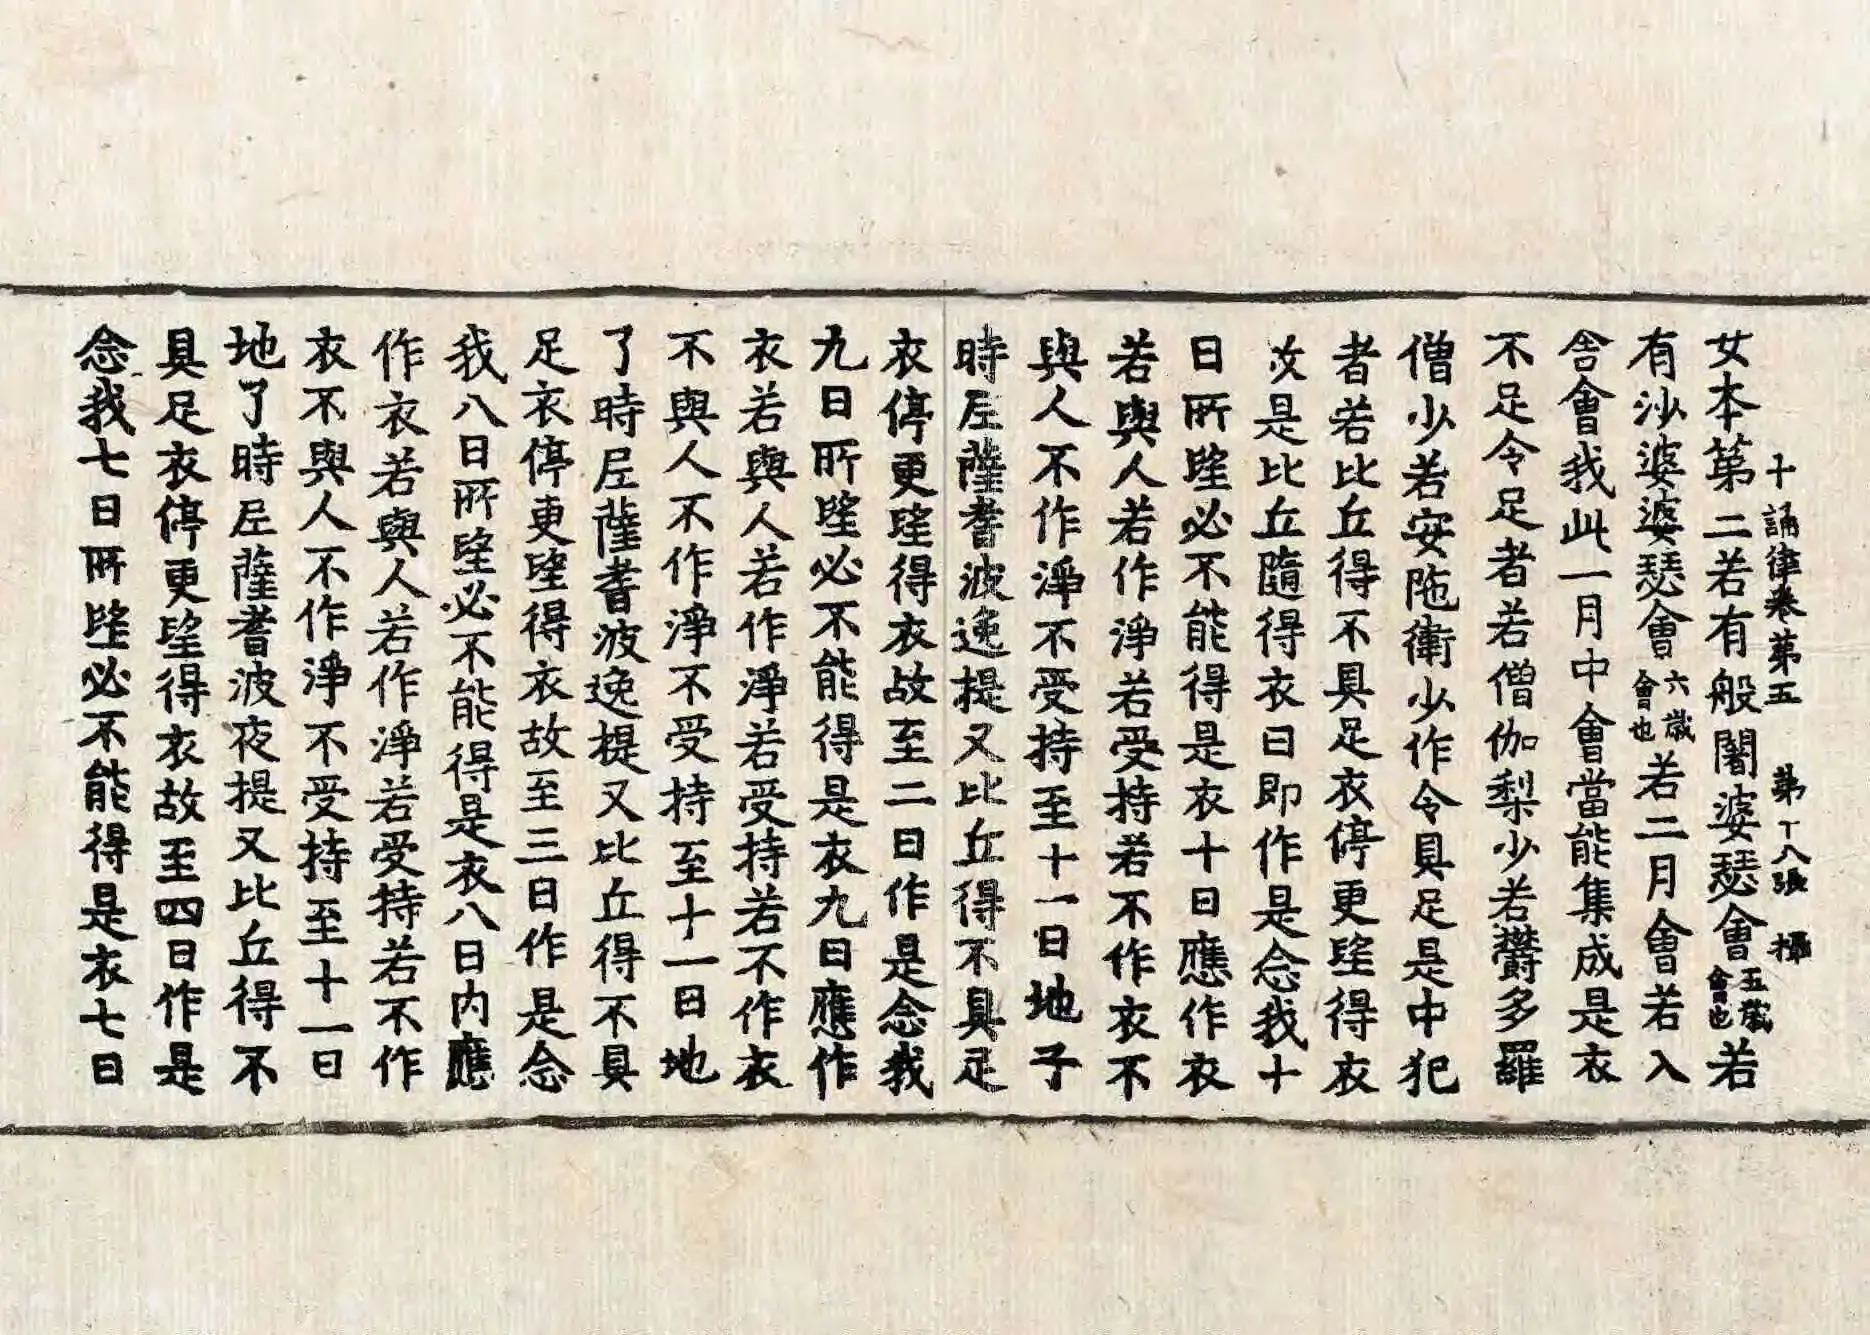 十誦律卷第五　第十八張　攝
女本第二若有般闍婆瑟會五歲會也若
有沙婆婆瑟會六歲會也若二月會若入
舍會我此一月中會當能集成是衣
不足令足者若僧伽梨少若欝多羅
僧少若安陁衛少作令具足是中犯
者若比丘得不具足衣停更望得衣
故是比丘隨得衣日即作是念我十
日所望必不能得是衣十日應作衣
若與人若作淨若受持若不作衣不
與人不作淨不受持至十一日地了
時尼薩耆波逸提又比丘得不具足
衣停更望得衣故至二日作是念我
九日所望必不能得是衣九日應作
衣若與人若作淨若受持若不作衣
不與人不作淨不受持至十一日地
了時尼薩耆波逸提又比丘得不具
足衣停更望得衣故至三日作是念
我八日所望必不能得是衣八日內應
作衣若與人若作淨若受持若不作
衣不與人不作淨不受持至十一日
地了時尼薩耆波夜提又比丘得不
具足衣停更望得衣故至四日作是
念我七日所望必不能得是衣七日